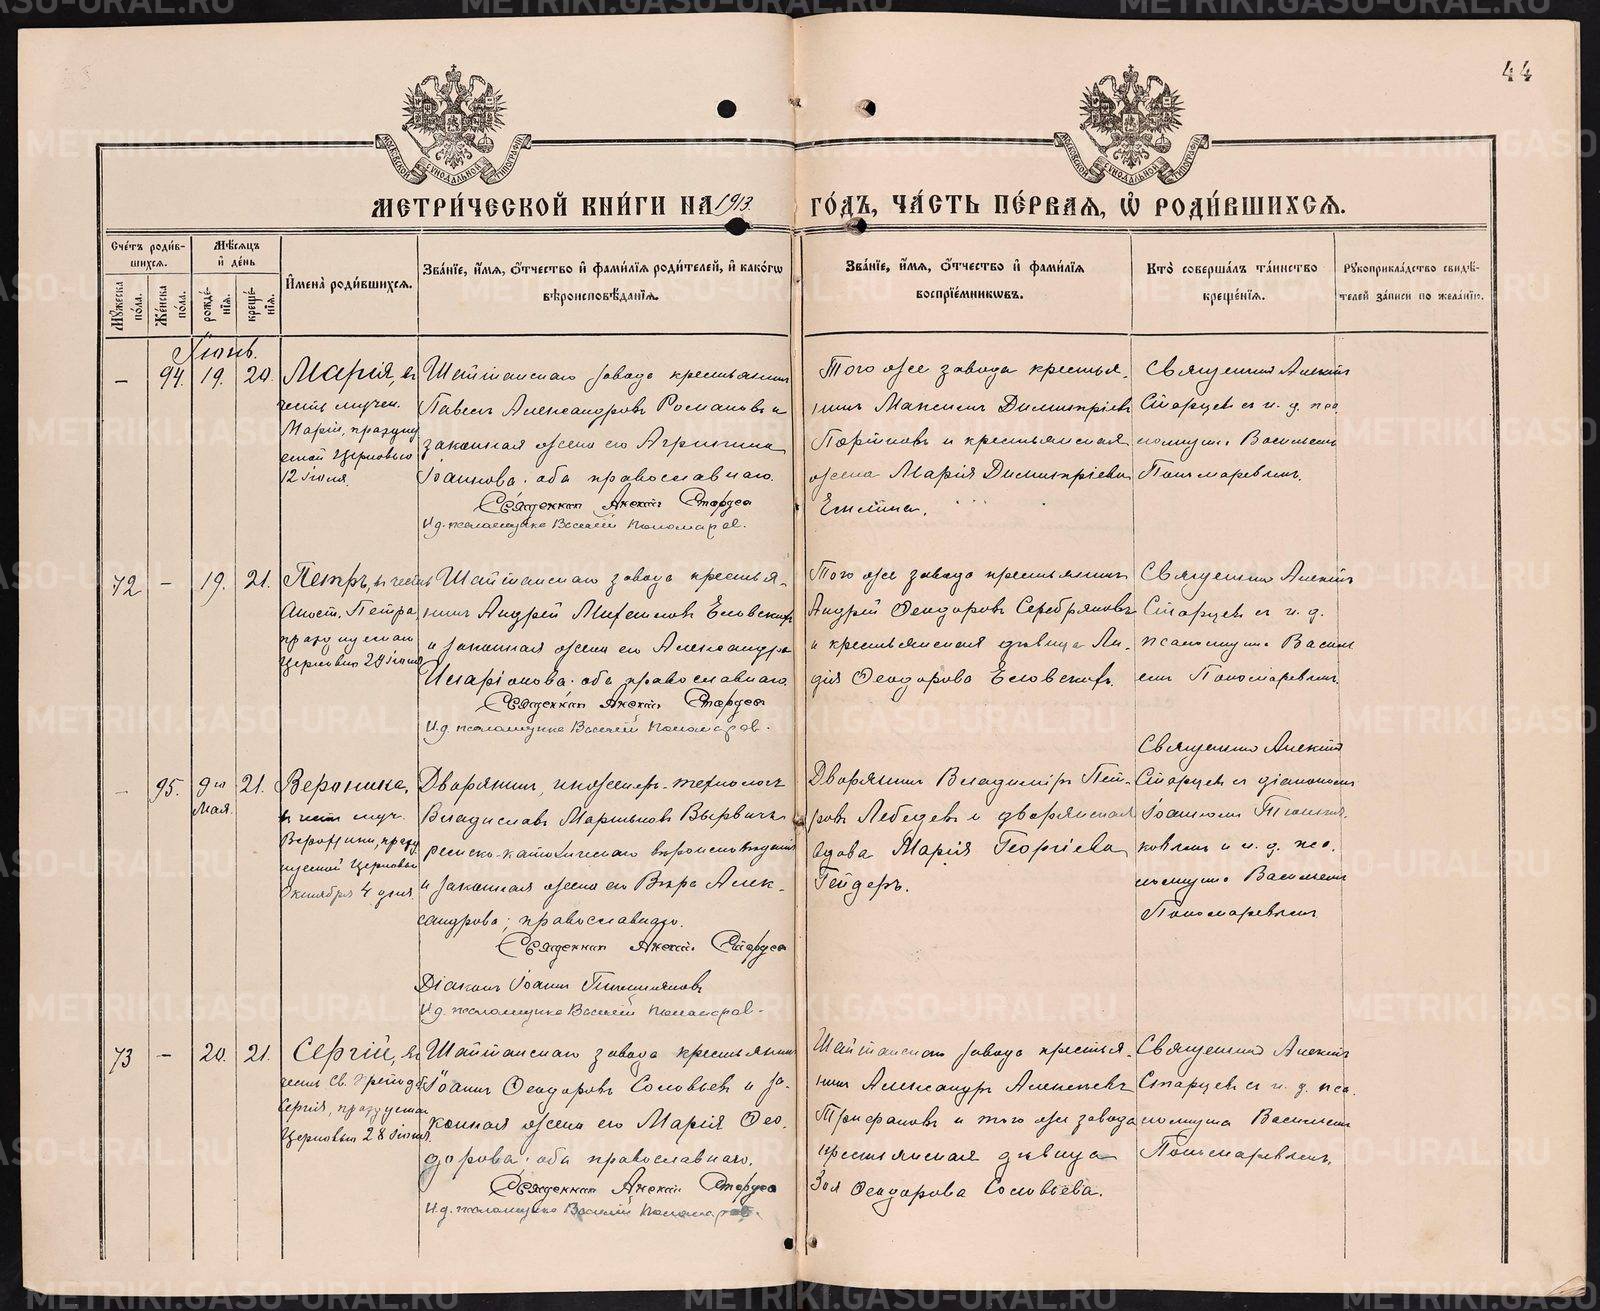 44
МОСКОВСКОЙ СѴНОДАЛЬНОЙ ТИПОГРАФІИ
МОСКОВСКОЙ СѴНОДАЛЬНОЙ ТИПОГРАФІИ
МЕТРИ́ЧЕСКОЙ КНИ́ГИ НА 1913. ГО́ДЪ, ЧА́СТЬ ПЕ́РВАЯ, Ѡ҆ РОДИ́ВШИХСЯ.
Сче́тъ роди́вшихся.
Му́жеска по́ла.
Же́нска по́ла.
Мѣ́сяцъ и҆ де́нь
рожде́нїя.
креще́нїя.
И҆мена̀ роди́вшихся.
Зва́нїе, и҆́мя, ѻ҆́тчество и҆ фами́лїя роди́телей, и҆ како́гѡ
вѣроисповѣ́данїя.
Зва́нїе, и҆́мя, ѻ҆́тчество и҆ фами́лїя
воспрїе́мникѡвъ.
Кто̀ соверша́лъ та́инство
креще́нїя.
Рꙋкоприкла́дство свидѣ́телей за́писи по жела́нїю.
Іюнь.
– 94. 19. 20.
Марія, въ
честь мучен.
Маріи, празднуемой Церковью
12 іюля.
Шайтанскаго завода крестьянинъ
Павелъ Александровъ Романовъ и
законная жена его Агрипина
Іоаннова. оба православнаго.
Священникъ Алексій Старцев
И. д. псаломщика Василій Пономарев.
Того же завода крестьянинъ Максимъ Димитріевъ
Портновъ и крестьянская
жена Марія Димитріева
Священникъ Алексій
Старцевъ съ и. д. псаломщика Васильемъ
Пономаревымъ.
72 – 19. 21.
Петръ, въ честь
Апост. Петра,
празднуемаго
Церковью 29 іюня
Шайтанскаго завода крестьянинъ Андрей Еловскихъ
и законная жена его Александра
Иларіонова. оба православнаго.
Священникъ Алексій Старцев
И. д. псаломщика Василій Пономарев.
Того же завода крестьянинъ
Андрей Ѳеодоровъ Серебряковъ
и крестьянская дѣвица Лидія Ѳеодорова Еловскихъ.
Священникъ Алексій
Старцевъ съ и. д.
псаломщика Васильемъ Пономаревымъ.
– 95. 9го Мая. 21.
Вероника,
въ честь муч.
Вероники, празднуемой Церковью
Октября 4 дня.
Дворянинъ, инженеръ-технологъ
Владиславъ
римско-католическаго вѣроисповѣданія
и законная жена его Вѣра Александрова; православнаго.
Священникъ Алексій Старцев
Діаконъ Іоаннъ
И. д. псаломщика Василій Пономарев.
Дворянинъ Владиміръ Петровъ Лебедевъ и дворянская
вдова Марія Георгіева
Гейдеръ.
Священникъ Алексій
Старцевъ съ діакономъ
Іоанномъ
и и. д. псаломщика Васильемъ
Пономаревымъ
73 – 20. 21.
Сергій, въ
честь Св. Преподоб.
Сергія, празднуемаго
Церковью 28 іюня.
Шайтанскаго завода крестьянинъ
Іоаннъ Ѳеодоровъ Соловьевъ и законная жена его Марія Ѳеодорова. оба православнаго.
Священникъ Алексій Старцев
И. д. псаломщика Василій Пономарев.
Шайтанскаго завода крестьянинъ Александръ Алексѣевъ
Трифановъ и того же завода
крестьянская дѣвица
Зоя Ѳеодорова Соловьева.
Священникъ Алексій
Старцевъ съ и. д. псаломщика Васильемъ
Пономаревымъ.
METRIKI.GASO-URAL.RU